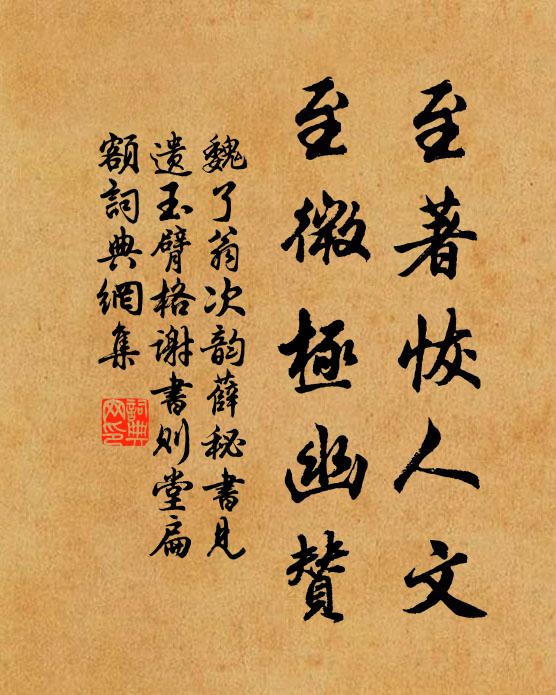 至著恢人文
至微極幽贊
魏了翁次韵薛秘書見
遺玉臂格謝書則堂扁
額詞典網集
詞典
网印